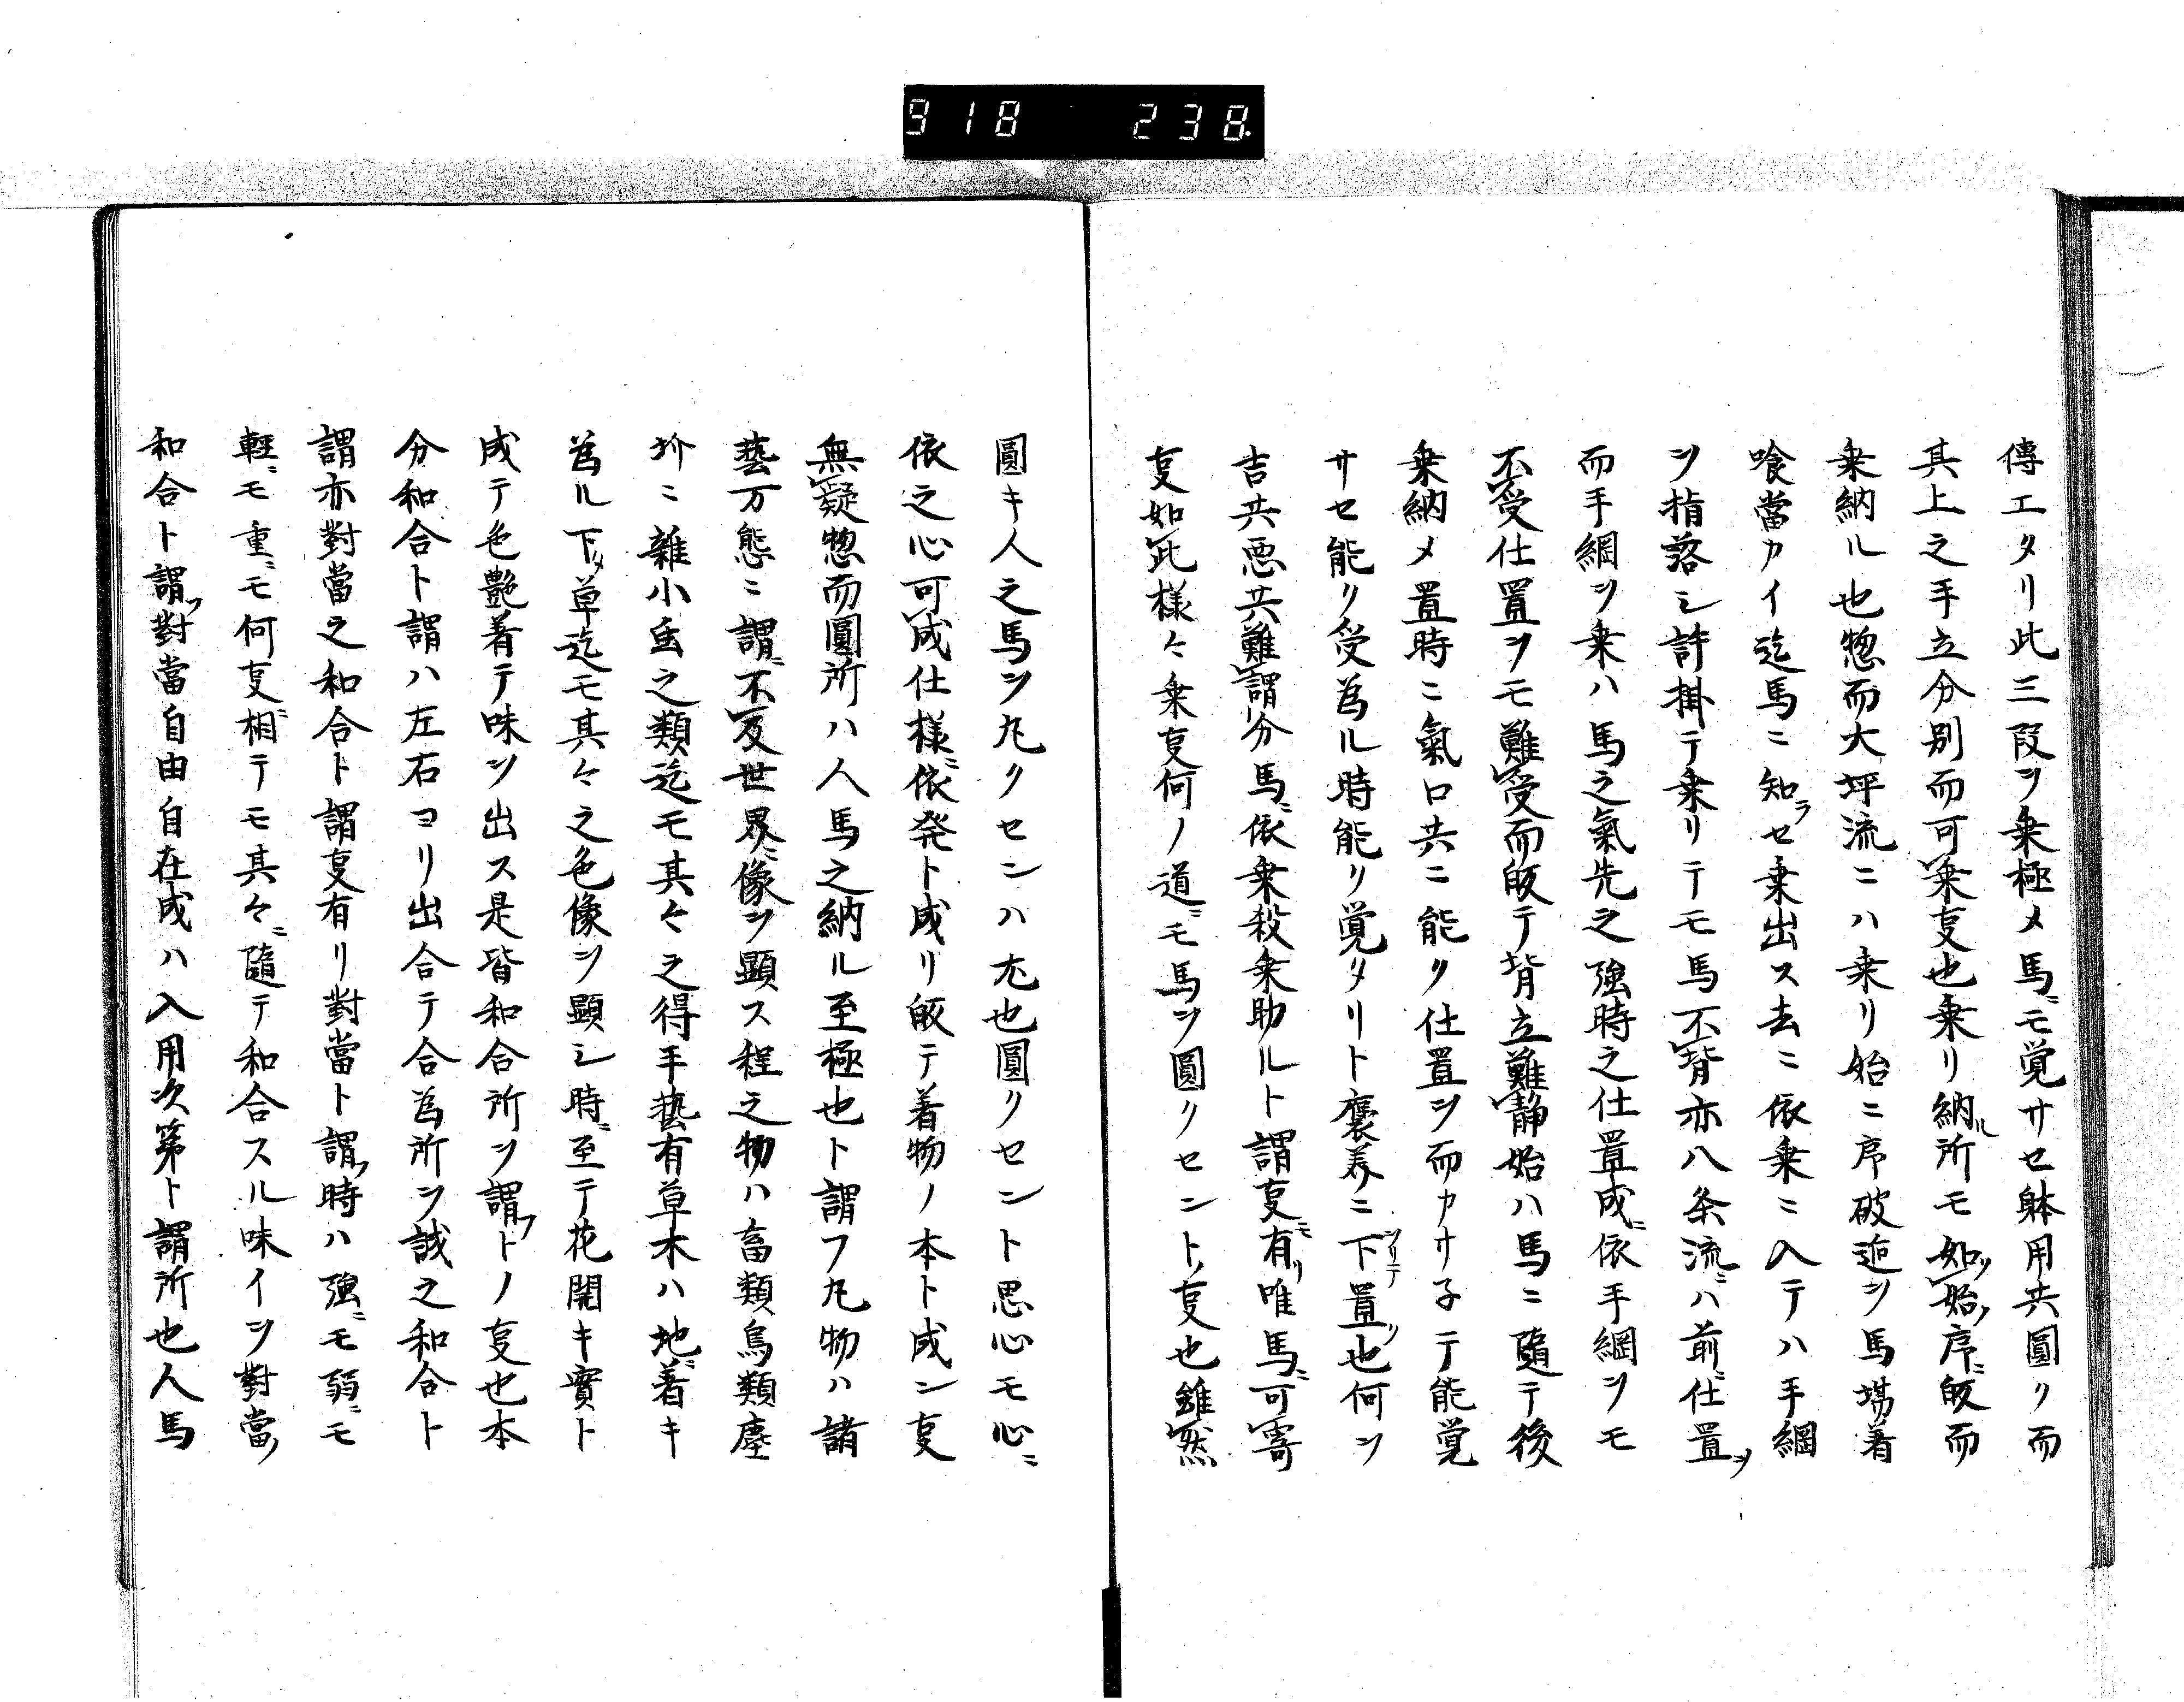 918 238.
傳エタリ此三段ヲ乗極メ馬ニモ覚サセ躰用共圓ク而
其上之手立分別而可乗㕝也乗リ納ル所モ如ク始ノ序ニ皈而
乗納ル也惣而大坪流ニハ乗リ始ニ序破迊ヲ馬場着
喰當カイ迄馬ニ知ラセ乗出ス去ニ依乗ニ入テハ手綱
ヲ指落シ許掛テ乗リテモ馬不背亦八条流ニハ前ニ仕置ヲ
而手綱ヲ乗ハ馬之氣先之強時之仕置成ニ依手綱ヲモ
不受仕置ヲモ難受而皈テ背立難静始ハ馬ニ随テ後
乗納メ置時ニ氣口共ニ能ク仕置ヲ而カサ子テ能覚
サセ能リ受為ル時能リ覚タリト褒美ニ下リテ置リ也何ヲ
吉共悪共難謂分馬ニ依乗殺乗助ルト謂㕝モ有リ唯馬ニ可寄
㕝如此様々乗㕝何ノ道ニモ馬ヲ圓クセント㕝也雖然
圓キ人之馬ヲ丸クセンハ尤也圓クセント思心モ心ニ
依之心可成仕様ニ依発ト成リ皈テ着物ノ本ト成ン㕝
無疑惣而圓所ハ人馬之納ル至極也ト謂フ凡物ハ諸
藝万態ニ謂ニ不及世界ニ像ヲ顕ス程之物ハ畜類鳥類塵
圿ニ雑小虫之類迄モ其々之得手藝有草木ハ地ニ着キ
為ル下タ草迄モ其々之色像ヲ顕シ時ニ至テ花開キ實ト
成テ色艶着テ味ヲ出ス是皆和合所ヲ謂フトノ㕝也本
分和合ト謂ハ左右ヨリ出合テ合為所ヲ誠之和合ト
謂亦對當之和合ト謂㕝有リ對當ト謂フ時ハ強ニモ弱ニモ
軽ニモ重ニモ何㕝ニ相テモ其々ニ随テ和合スル味イヲ對當ノ
和合ト謂フ對當自由自在成ハ入用次第ト謂所也人馬